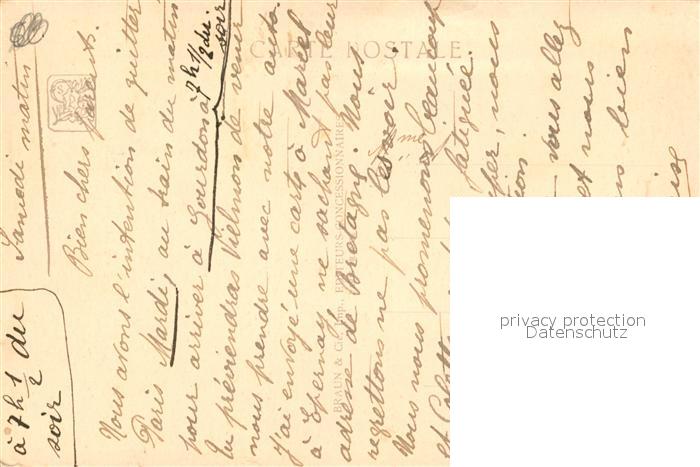 Samedi matin
Bien chers parents.
Nous avons l'intention de quitter
Paris Mardi au train du matin
pour arriver à Gourdon à 7h 1/2 du
soir
Tu préviendras Vielmons de venir
nous prendre avec notre auto.
J'ai envoyé une carte à Marcel
à Epernay ne sachant pas leur
adresse de Bretagne. Nous
regrettons ne pas les voir.
Nous nous promenons beaucoup
et fatiguée.
nous
vous allez
et nous
bien
à 7h 1/2 du
soir
CARTE POSTALE
BRAUN & Cie, Imp., EDITEURS-CONCESSIONNAIRES
privacy protection
Datenschutz